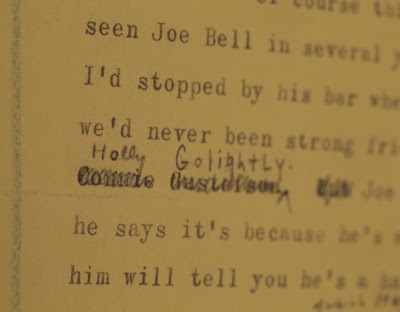 of course thi
seen Joe Bell in several y
I'd stopped by his bar whe
we'd never been strong frie
Holly Golightly.
Connie Gustafson, Joe
he says it's because he's
him will tell you he's a ha